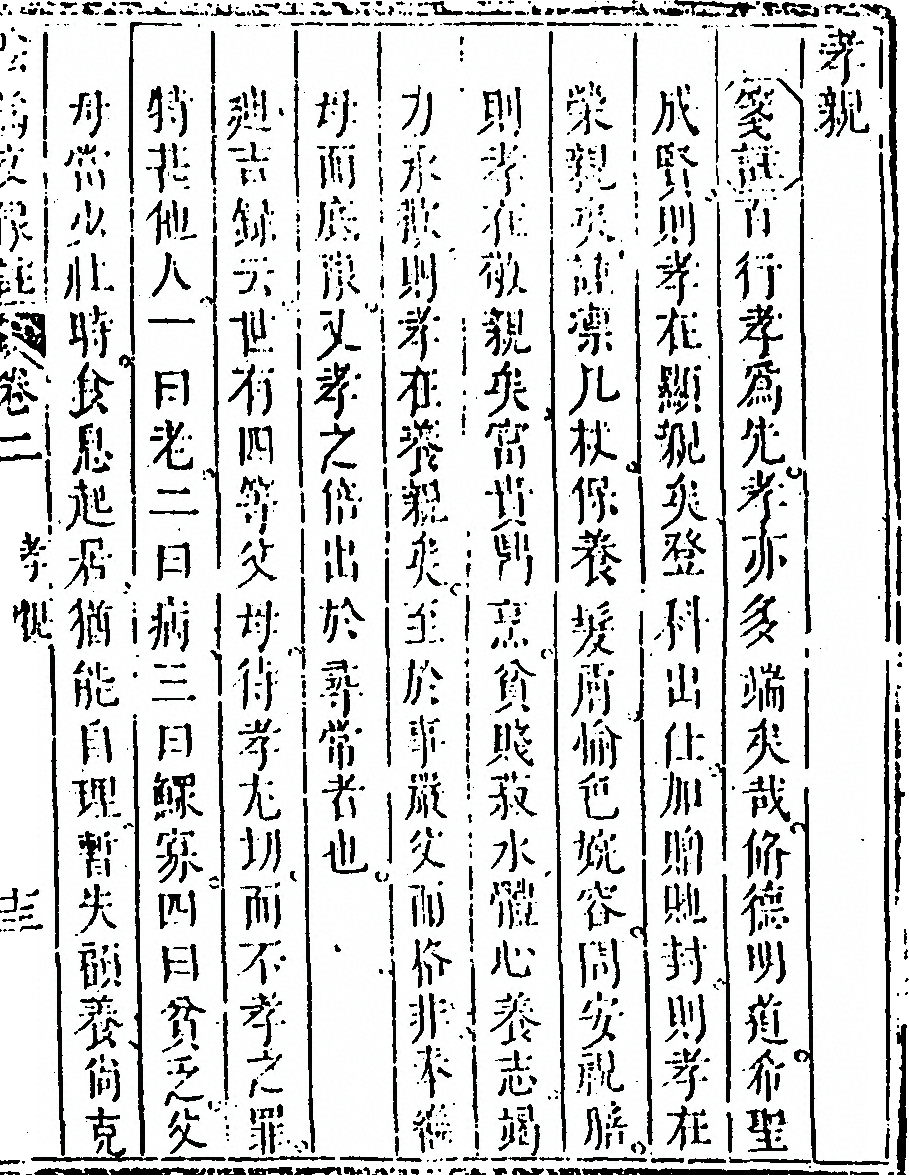 孝親
箋註百行孝爲先孝亦多端矣哉脩德明道希聖
成賢則孝在顯親矣登科出仕加贈貤封則孝在
榮親矣謹凛几杖保養髮膚愉色婉容問安視膳
則孝在敬親矣富貴鼎烹貧賤菽水體心養志竭
力承歡則孝在養親矣至於事嚴父而格非奉繼
母而底豫又孝之倍出於尋常者也
廸吉録云世有四等父母待孝尤切而不孝之罪
特甚他人一曰老二曰病三曰鰥寡四曰貧乏父
母當少壯時食息起居猶能自理暫失顧養尚克
卷二 孝親